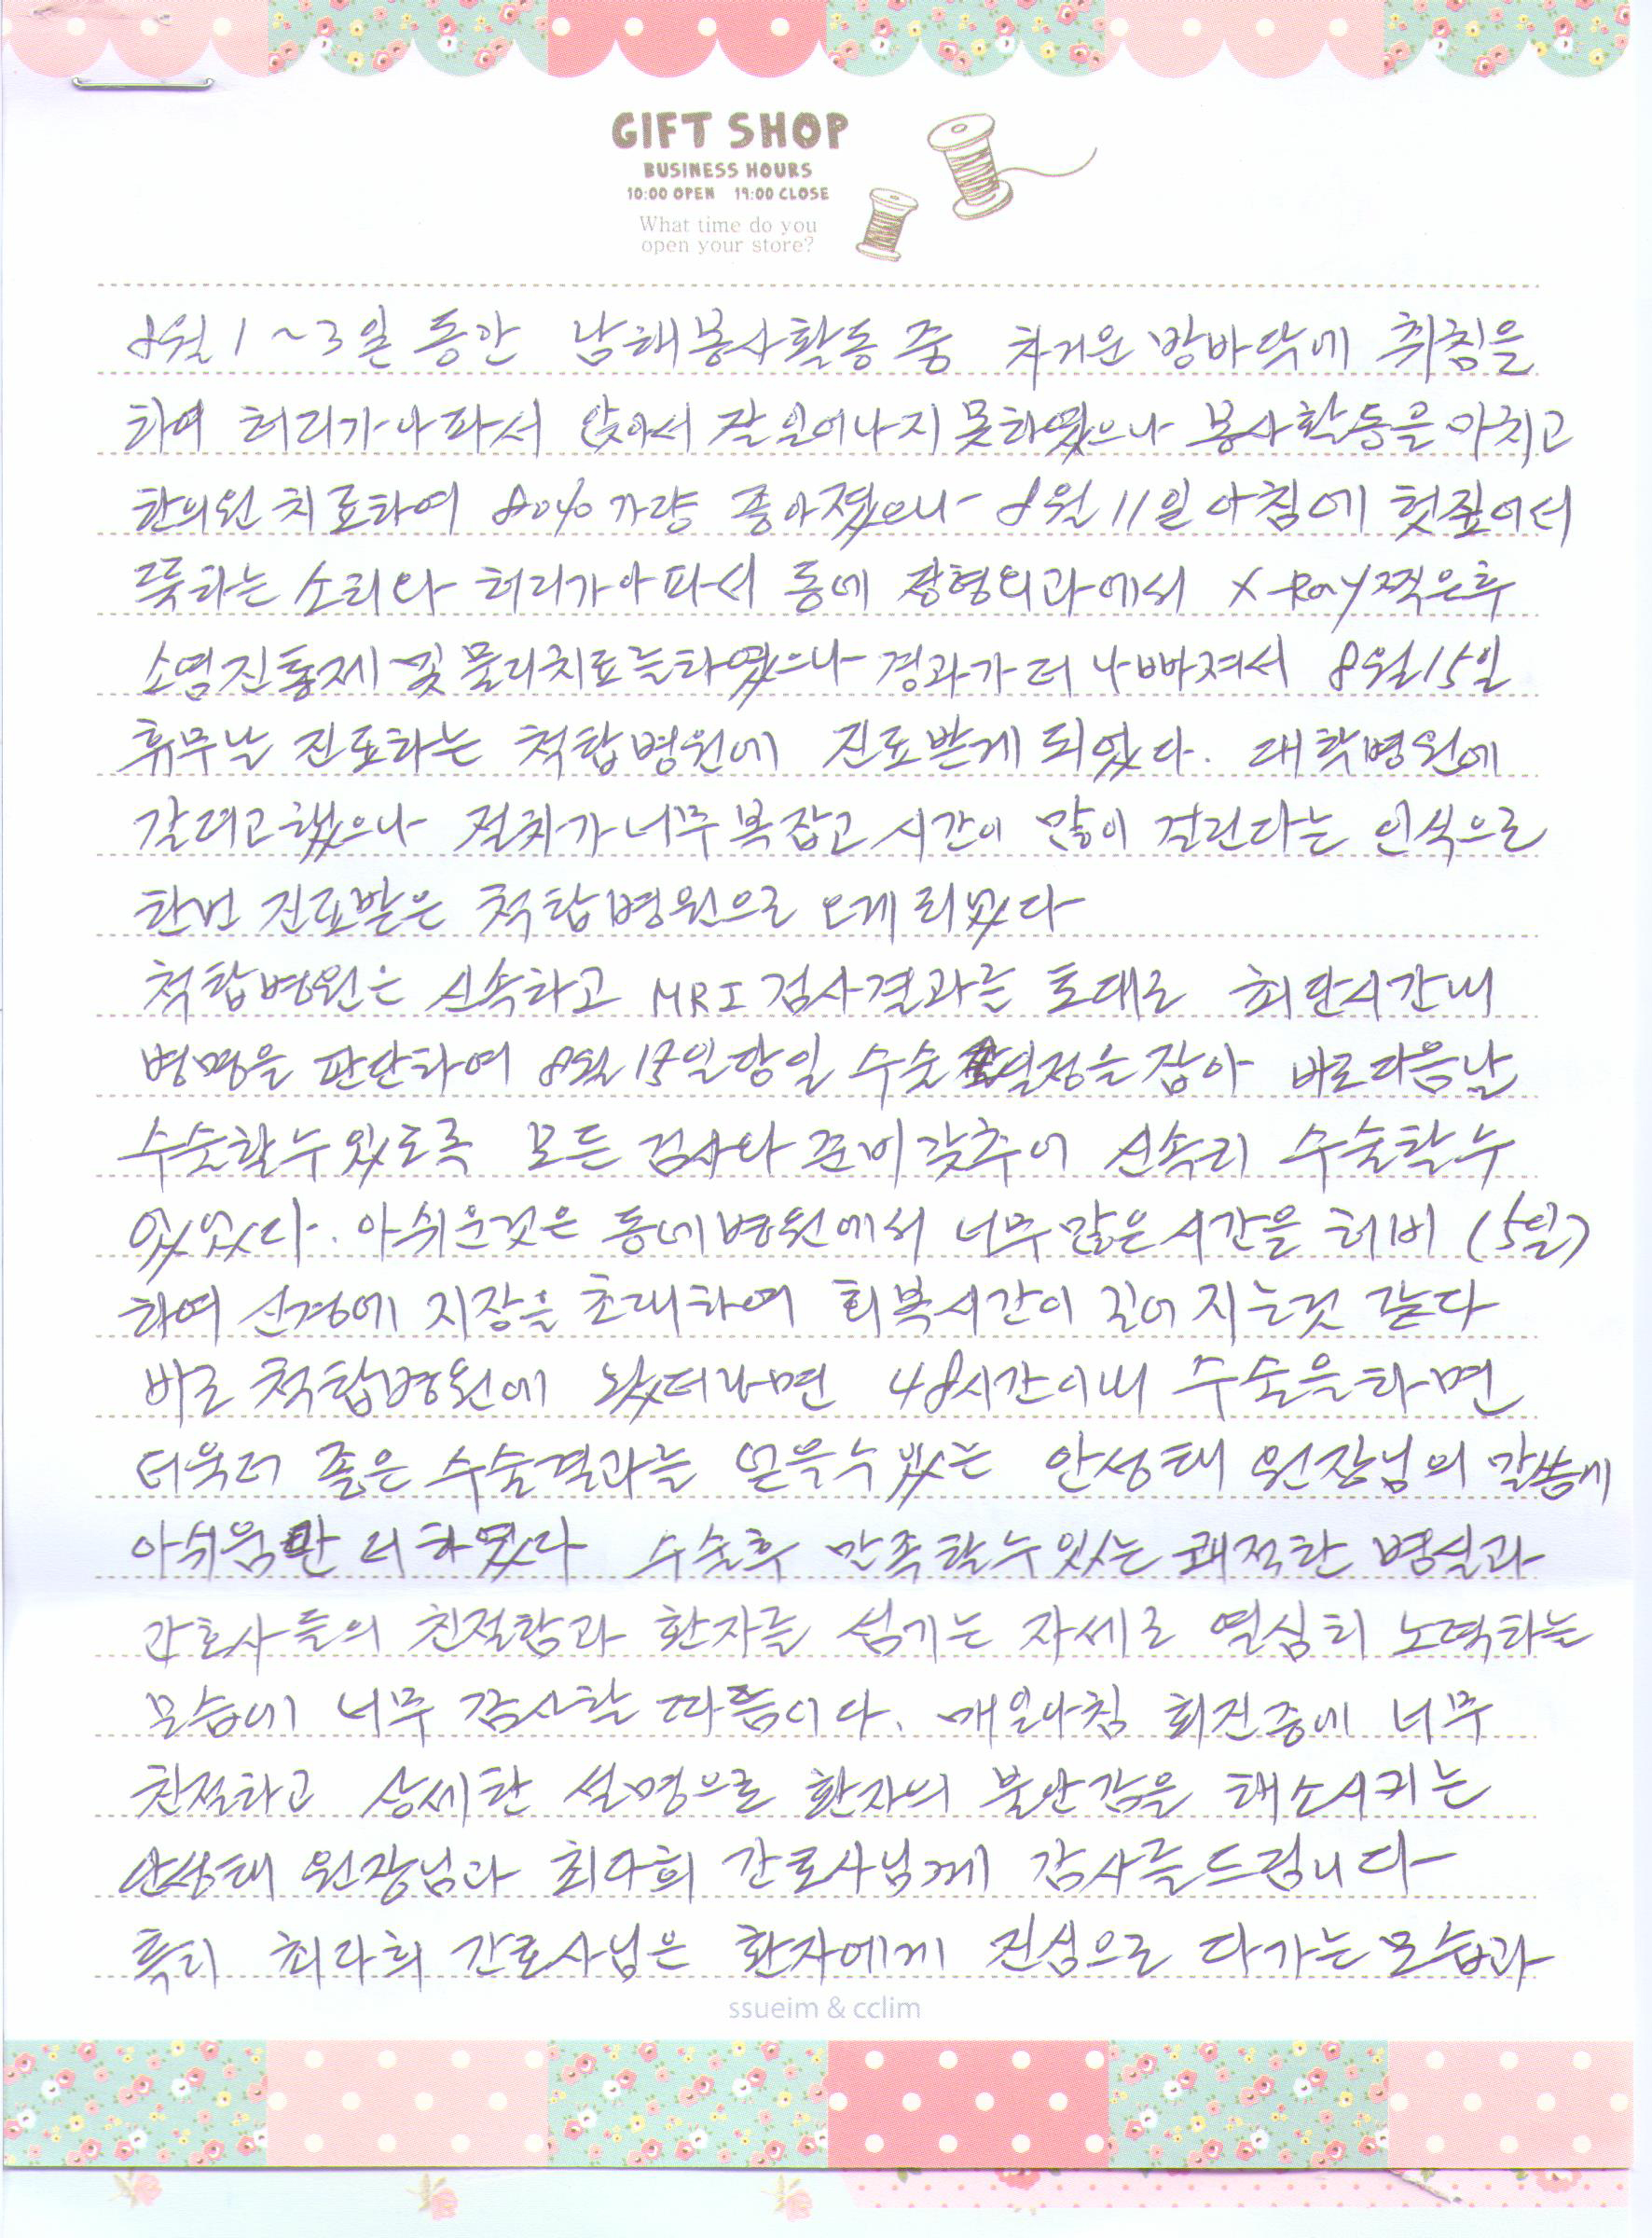 GIFT SHOP
BUSINESS HOURS
10:00 OPEN 19:00 CLOSE
What time do you
open your store?
8월 1~3일 동안 남해봉사활동 중 차거운 방바닥에 취침을
하여 허리가 아파서 앉아서 잘 일어나지 못하였으나 봉사활동을 마치고
한의원 치료하여 80% 가량 좋아졌으나 8월 11일 아침에 헛짚어서
뚝하는 소리와 허리가 아파서 동네 정형외과에서 X-Ray 찍은후
소염진통제 및 물리치료를 하였으나 경과가 더 나빠져서 8월 15일
휴무날 진료하는 척탑병원에 진료받게 되었다. 대학병원에
갈려고 했으나 절차가 너무 복잡고 시간이 많이 걸린다는 인식으로
한번 진료받은 척탑병원으로 오게 되었다
척탑병원은 신속하고 MRI 검사결과를 토대로 최단시간내
병명을 판단하여 8월 15일 당일 수술 일정을 잡아 바로 다음날
수술할 수 있도록 모든 검사와 준비 갖추어 신속히 수술할 수
있었다. 아쉬운것은 동네병원에서 너무 많은 시간을 허비 (5일)
하여 신경에 지장을 초래하여 회복시간이 길어 지는것 같다
바로 척탑병원에 왔더라면 48시간이내 수술을 하면
더욱더 좋은 수술결과를 얻을 수 있는 안성태 원장님의 말씀에
아쉬움만 더하였다 수술후 만족할 수 있는 쾌적한 병실과
간호사들의 친절함과 환자를 섬기는 자세로 열심히 노력하는
모습에 너무 감사할 따름이다. 매일아침 회진중에 너무
친절하고 상세한 설명으로 환자의 불안감을 해소시키는
안성태 원장님과 최다희 간호사님께 감사를 드립니다
특히 최다희 간호사님은 환자에게 진심으로 다가는 모습과
ssueim & cclim